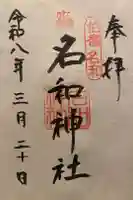 奉拝
名和神社
令和八年三月二十日